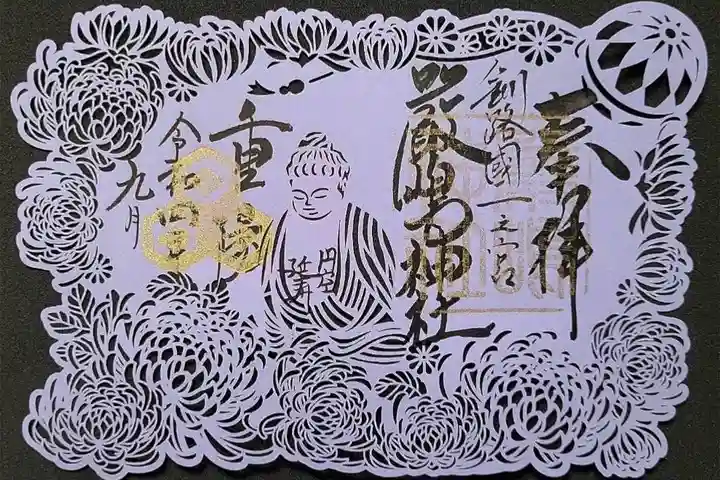 奉拝
釧路國一之宮
厳島神社
重陽
令和四年
九月